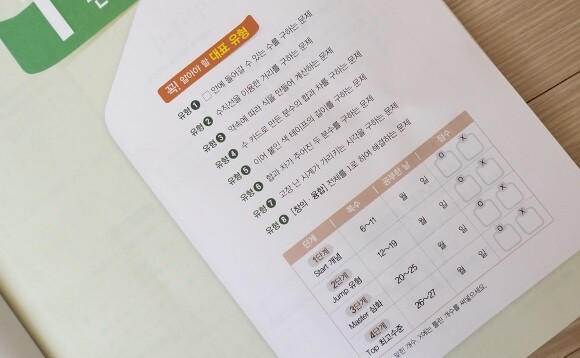 1
꼭! 알아야 할 대표 유형
유형 1 □ 안에 들어갈 수 있는 수를 구하는 문제
유형 2 수직선을 이용한 거리를 구하는 문제
유형 3 약속에 따라 식을 만들어 계산하는 문제
유형 4 수 카드로 만든 분수의 합과 차를 구하는 문제
유형 5 이어 붙인 색 테이프의 길이를 구하는 문제
유형 6 합과 차가 주어진 두 분수를 구하는 문제
유형 7 고장 난 시계가 가리키는 시각을 구하는 문제
유형 8 [창의·융합] 전체를 1로 하여 해결하는 문제
단계 쪽수 공부한 날 점수
1단계 Start 개념 6~11 월 일 O X
2단계 Jump 유형 12~19 월 일 O X
3단계 Master 심화 20~25 월 일 O X
4단계 Top 최고수준 26~27 월 일 O X
맞힌 개수, X에는 틀린 개수를 써넣으세요.